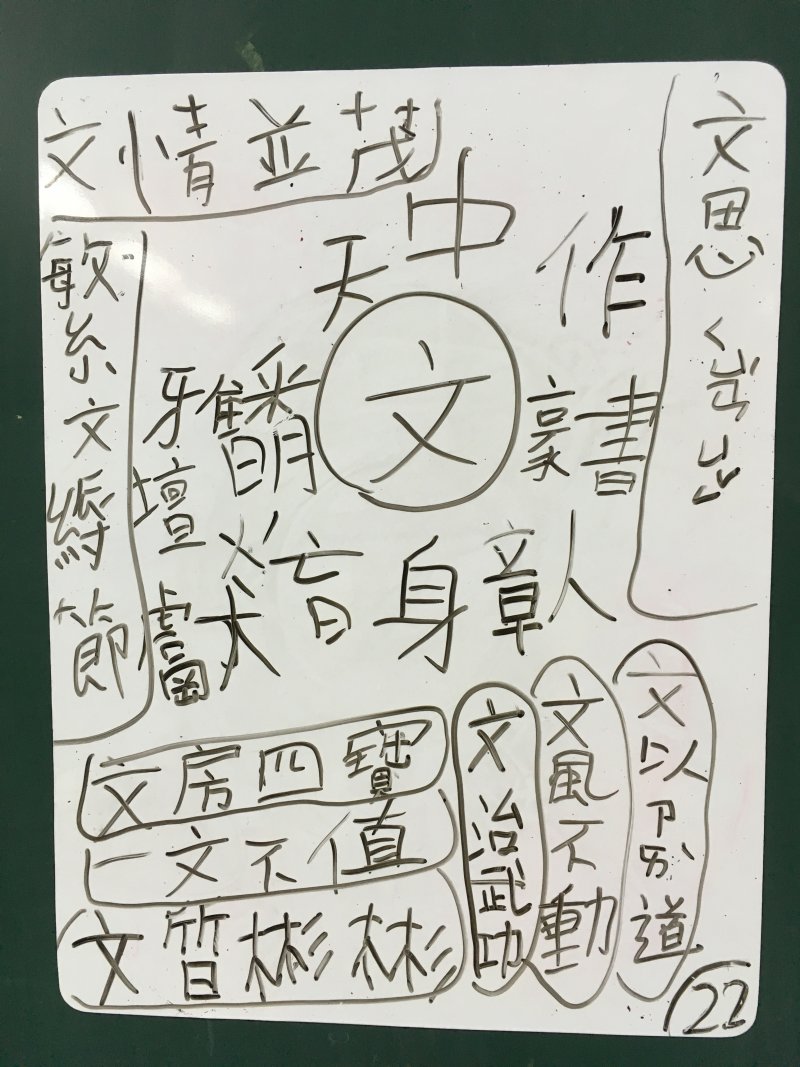 文情並茂
文思
繁文縟節
中
天
作
文
雅
豪
書
壇
獻
身
章
人
文房四寶
一文不值
文質彬彬
文治武功
文風不動
文以ㄗㄞˋ道
22